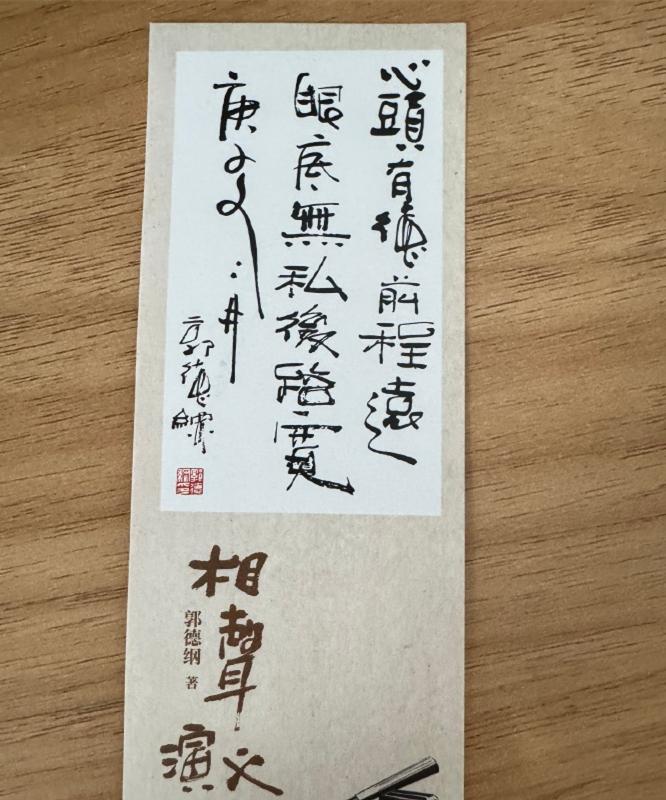 心頭有德前程遠
眼底無私後路寬
庚子
郭德綱
相聲演义
郭德纲 著